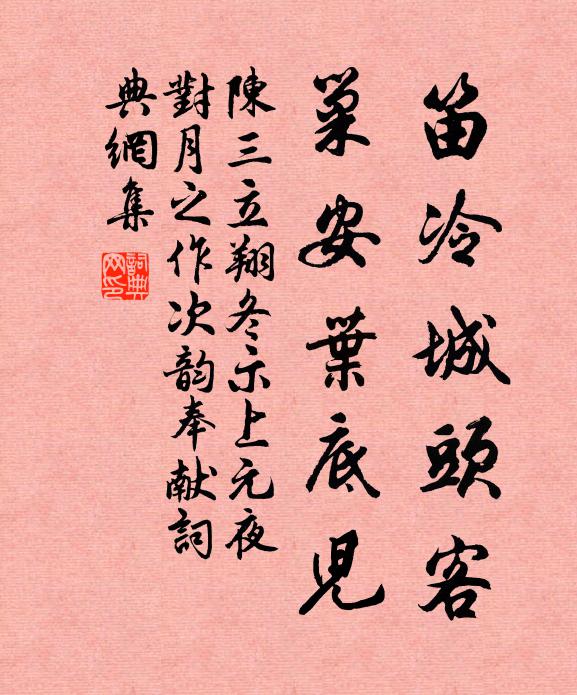 笛冷城頭客
巢安葉底兒
陳三立翔冬示上元夜
對月之作次韵奉献詞
典網集
詞典網印